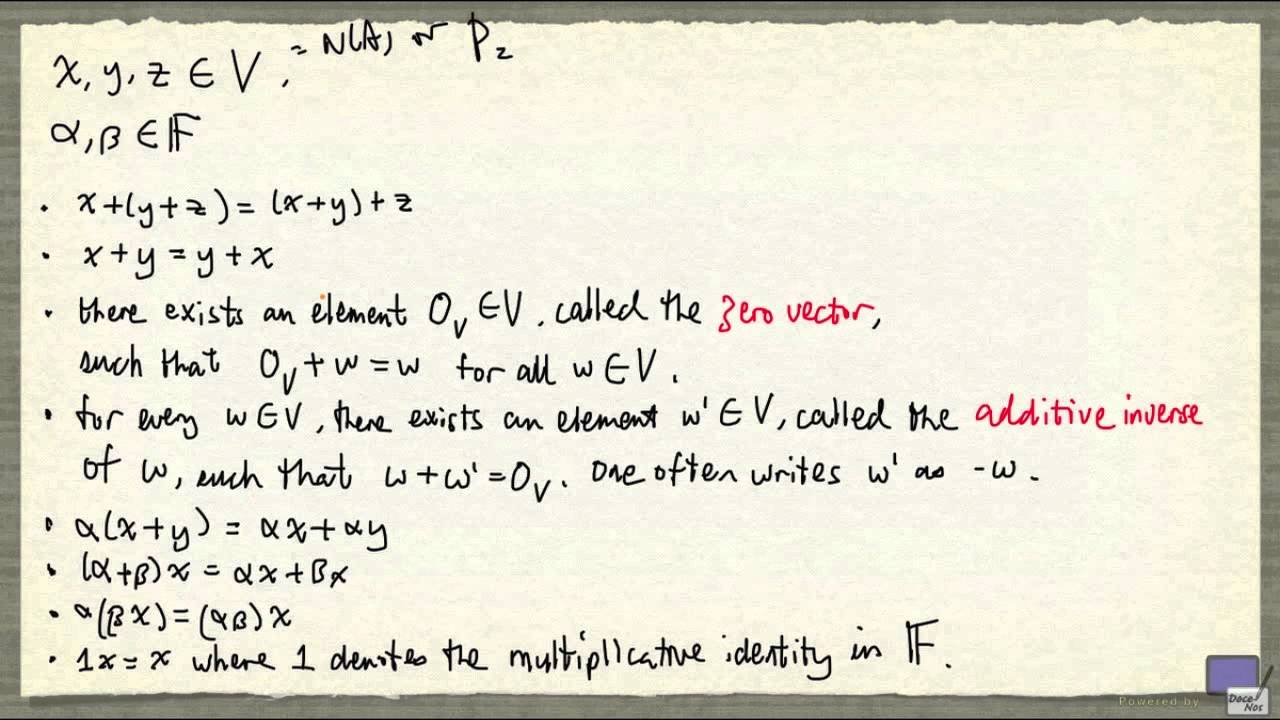 x, y, z ∈ V, = N(A) or P₂
α, β ∈ 𝔽
• x+(y+z) = (x+y)+z
• x+y = y+x
• there exists an element 0_V ∈ V, called the zero vector,
such that 0_V + w = w for all w ∈ V.
• for every w ∈ V, there exists an element w' ∈ V, called the additive inverse
of w, such that w+w' = 0_V. One often writes w' as -w.
• α(x+y) = αx+αy
• (α+β)x = αx+βx
• α(βx) = (αβ)x
• 1x = x where 1 denotes the multiplicative identity in 𝔽.
Powered by
Doce
Nos